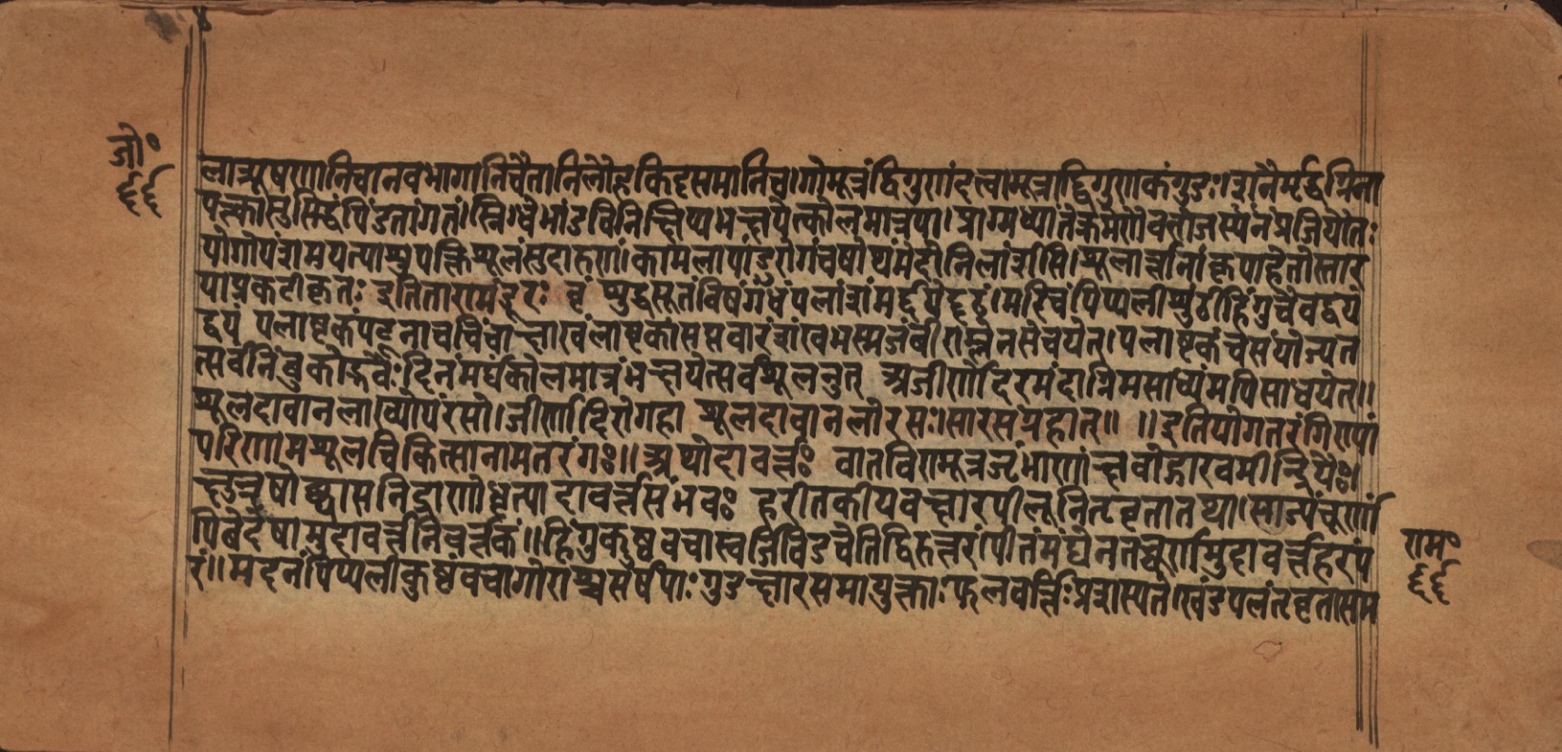 जो॰
६६
लात्र्यूषणानिचानवभागानिचैतानिलौहकिट्टसमानिच।गोमूत्रंद्विगुणंदत्वामूत्राद्द्विगुणकंगुडः।शनैर्मृद्वग्निना
पक्त्वातुसिद्धंपिंडतांगतं।स्निग्धेभांडेविनिक्षिप्यभक्षयेत्कोलमात्रया।प्राग्मध्यांतेक्रमेणैवभोजस्यंनप्रजियोतः
योगोयंशमयत्याशुपक्तिशूलंसुदारुणं।कामलापांडुरोगंचषोथंमेदोनिलार्शसि।शूलार्त्तानांकृपाहेतोस्तार
याप्रकटीकृतः इतितारामंडूरः वृ शुद्धसूतंविषंगंधंपलांशंमर्द्दयेद्दृढं।मरिचंपिप्पलीशुंठीहिंगुचैवद्वयं
द्वयं पलाष्टकंपटूनांचचिंचाक्षारवंलाष्टकांसप्तवारंशंखभस्मजंबीराम्लेनसेचयेत्।पलाष्टकंचसंयोज्यत
त्सर्वंनिंबुकोद्भवैः।दिनंमर्घंकोलमात्रंभक्षयेत्सर्वशूलनुत् अजीर्णोदरमंदाग्निमसाध्यंमपिसाधयेत॥
शूलदावानलाख्योयंरसो।जीर्णादिरोगहा शूलदावानलोरसः।सारसंग्रहात्॥ ॥इतियोगतरंगिण्यां
परिणामशूलचिकित्सानामतरंगः॥अथोदावर्त्तः वातविण्मूत्रजृंभाणांक्षवोद्गारवमीन्द्रियैः।
क्षुत्तृषोच्छ्वासनिद्राणांधृत्यादावर्त्तसंभवः हरीतकीयवक्षारपीलूनितृवृतातथा।साज्यंचूर्णं
पिबेदेषामुदावर्त्तनिवर्त्तकं॥हिंगुकुष्ठवचास्वर्जिविडचेतिद्विरुत्तरं।पीतंमद्येनतच्चूर्णमुदावर्त्तहरंप
रं॥मदनंपिप्पलीकुष्ठंवचागोराश्चसर्षपाः गुडक्षारसमायुक्ताःफलवर्त्तिःप्रशस्यते।खंडपलंतृवृतासम
राम॰
६६